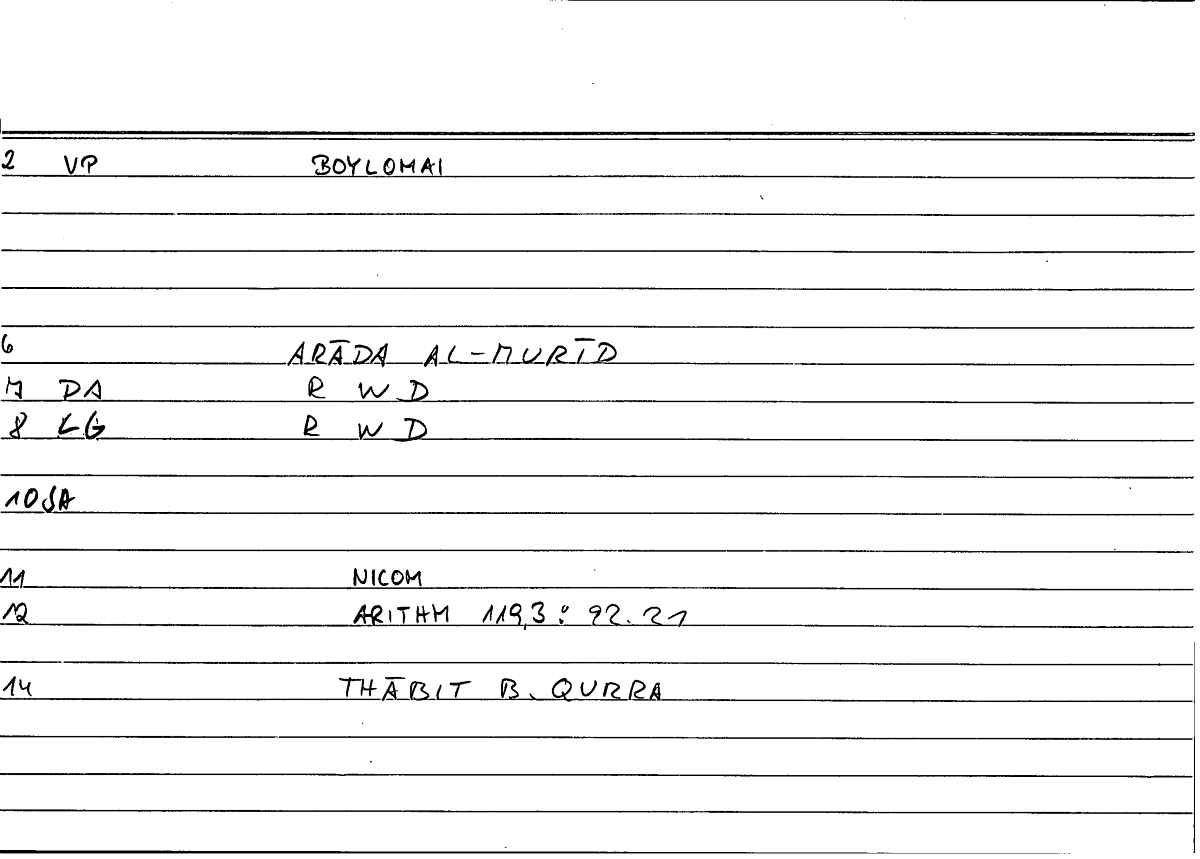 2 VP BOYLOMAI
6 ARĀDA AL-MURĪD
7 DA R W D
8 LG R W D
10 SA
11 NICOM
12 ARITHM 119,3 : 92.21
14 THĀBIT B. QURRA